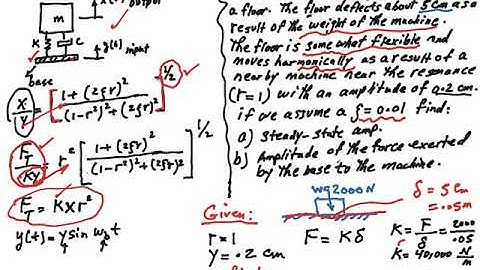 m
output
K
c
y(t) input
base
X/Y = [ 1 + (2ζr)² / (1-r²)² + (2ζr)² ]^1/2
F_T / KY = r² [ 1 + (2ζr)² / (1-r²)² + (2ζr)² ]^1/2
F_T = KXr²
y(t) = Y sin ω_b t
a floor. The floor deflects about 5cm as a
result of the weight of the machine.
The floor is some what flexible and
moves harmonically as a result of a
nearby machine near the resonance
(r=1) with an amplitude of 0.2 cm.
if we assume a ζ=0.01 find:
a) Steady-state amp.
b) Amplitude of the force exerted
by the base to the machine.
Given:
r=1
Y = .2 cm
W=2000N
F = Kδ
δ = 5cm
= .05m
K = F/δ = 2000/.05
K = 40,000 N/m